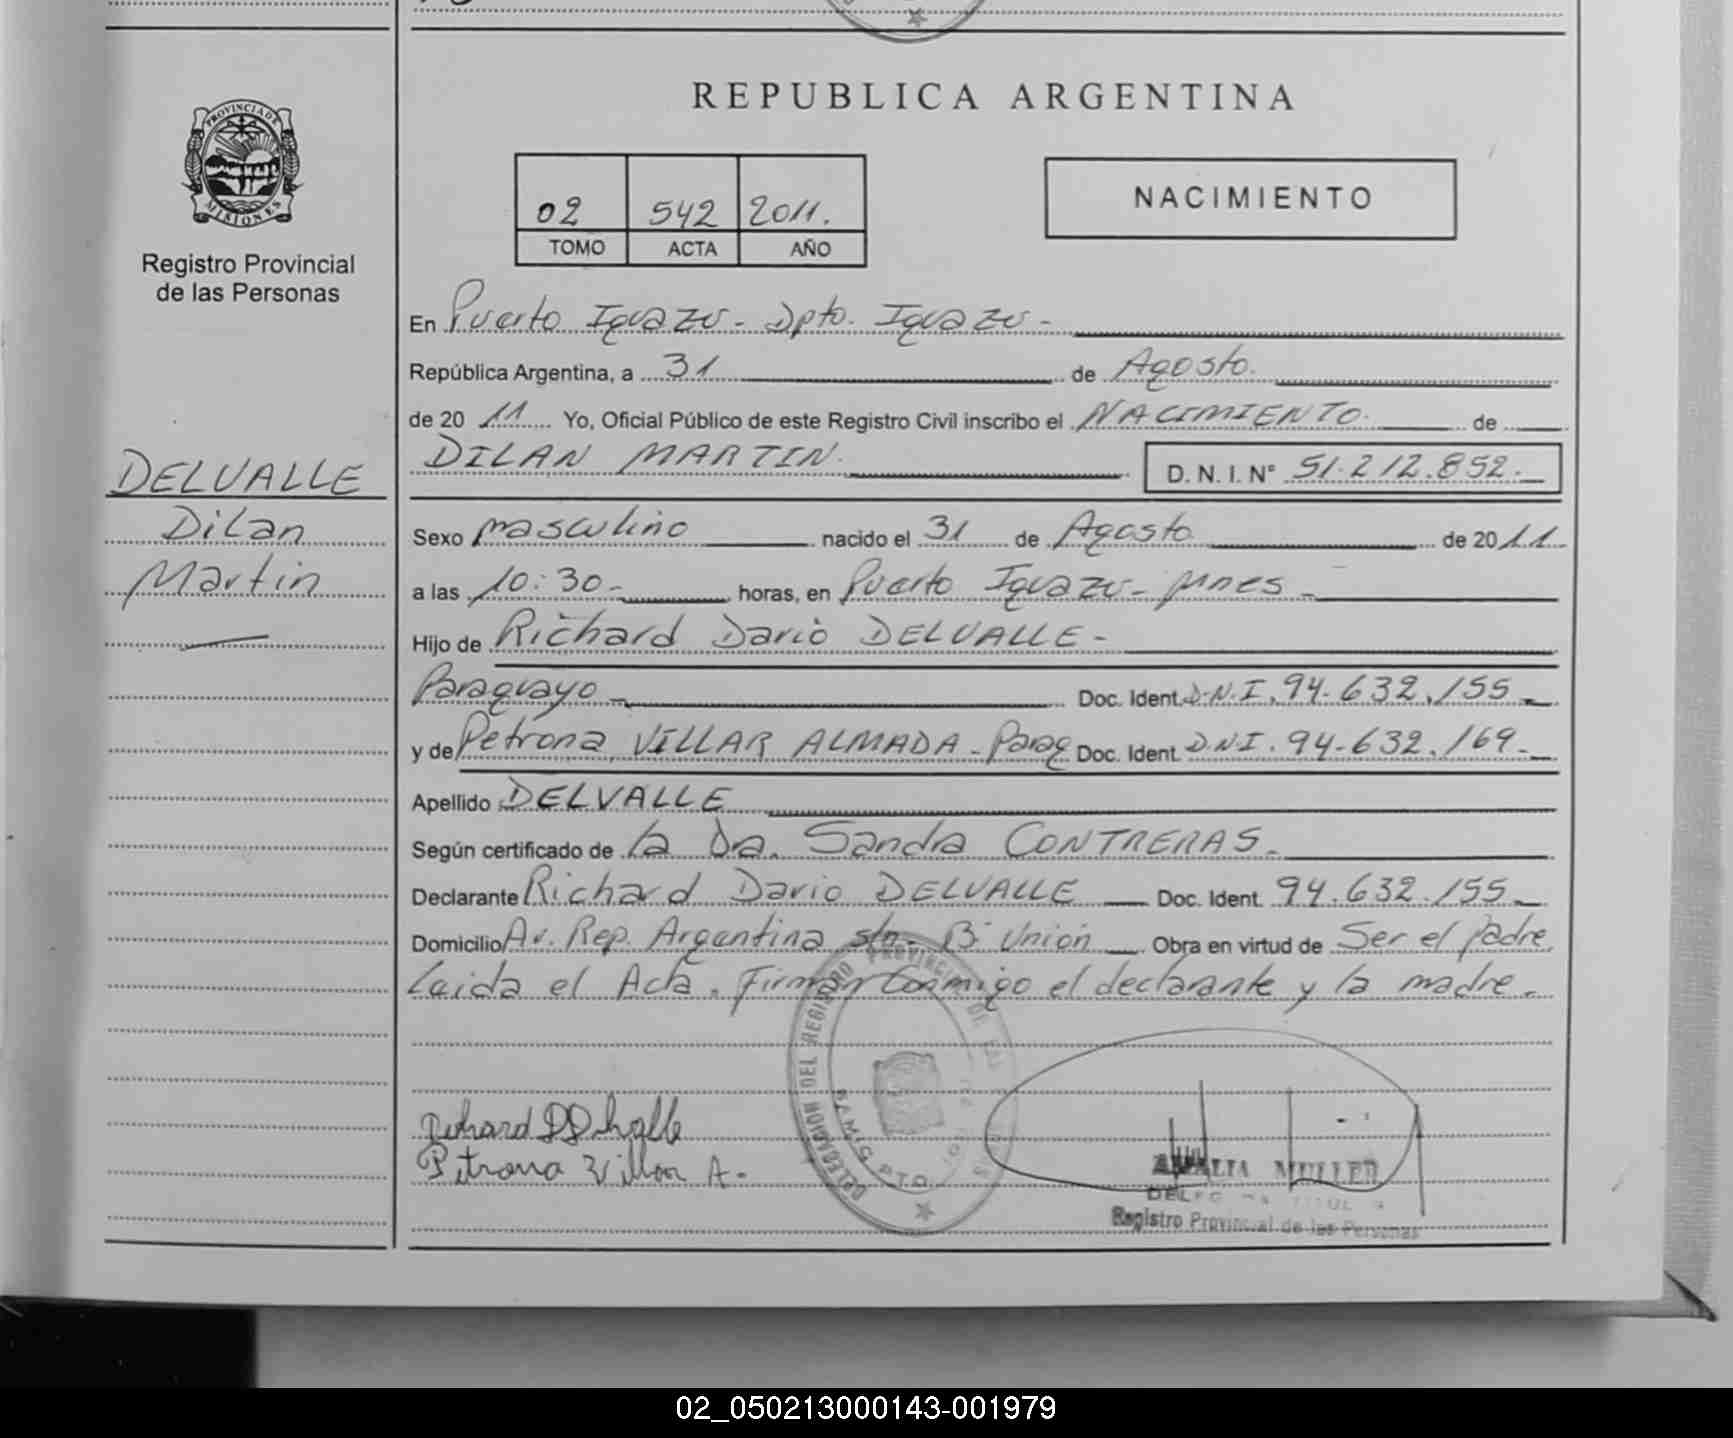 PROVINCIA DE
MISIONES
Registro Provincial
de las Personas
DELVALLE
Dilan
Martin
REPUBLICA ARGENTINA
02 542 2011.
TOMO ACTA AÑO
NACIMIENTO
En Puerto Iguazu - Dpto. Iguazu -
República Argentina, a 31 de Agosto.
de 20 11 Yo, Oficial Público de este Registro Civil inscribo el NACIMIENTO. de
DILAN MARTIN. D. N. I. N° 51.212.852.-
Sexo masculino nacido el 31 de Agosto de 2011.
a las 10:30- horas, en Puerto Iguazu - Mnes -
Hijo de Richard Dario DELVALLE -
Paraguayo - Doc. Ident. D.N.I. 94.632.155 -
y de Petrona VILLAR ALMADA - Parag Doc. Ident. D.N.I. 94-632.169 -
Apellido DELVALLE
Según certificado de la Dra. Sandra CONTRERAS -
Declarante Richard Dario DELVALLE Doc. Ident. 94.632.155 -
Domicilio Av. Rep. Argentina s/n - B° Unión Obra en virtud de Ser el padre.
Leida el Acta. Firman Conmigo el declarante y la madre.
DELEGACION DEL REGISTRO PROVINCIAL DE LAS PERSONAS
Richard D Delvalle
Petrona Villar A.
AMALIA MULLER
Registro Provincial de las Personas
02_050213000143-001979